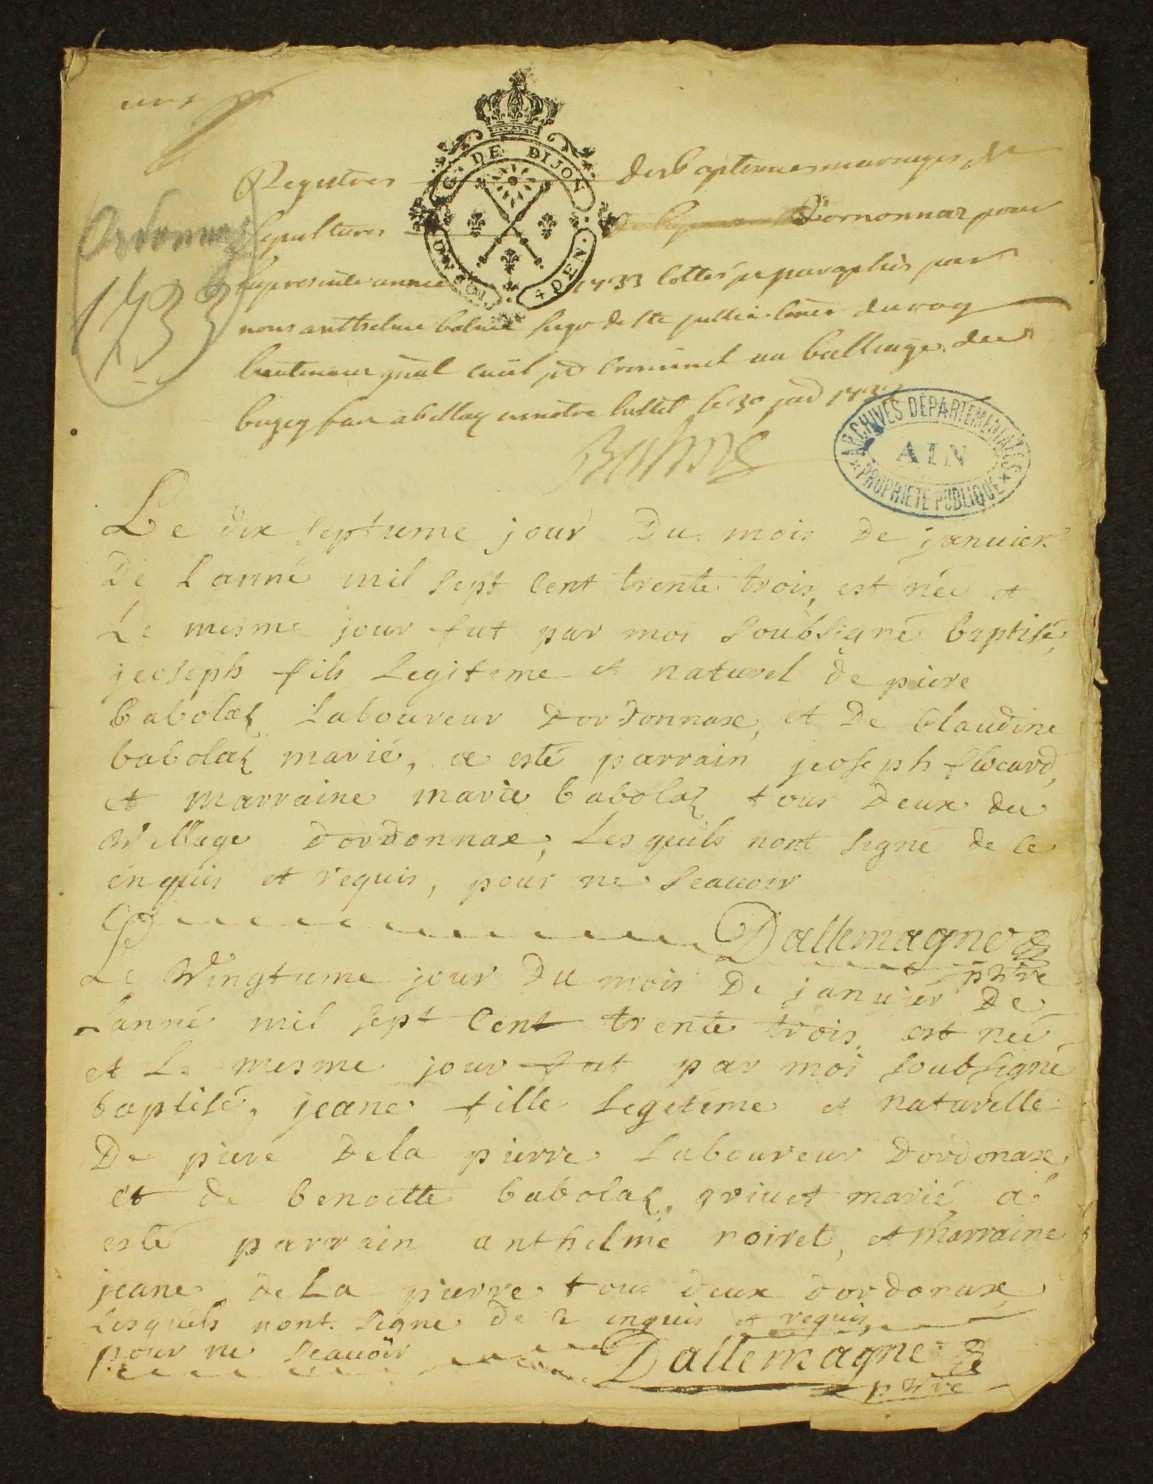 G. DE DIJON
4 DEN.
Ordonnaz
1733
Registres des baptemes mariages et
sepultures Dornonnaz pour
la presente année 1733 cottés et paraphés par
nous anthelme balme
lieutenant gnal civil et criminel au balliage de
bugey a belley hostel le 30
Balme
ARCHIVES DÉPARTEMENTALES
AIN
PROPRIÉTÉ PUBLIQUE
Le dix septieme jour Du mois De janvier
De Lanné mil sept Cent trente trois, est née et
Le mesme jour fut par moi soubsigné baptisé,
jeoseph fils Legitime et naturel de piere
babolaz Laboureur dordonnaxe, et De Claudine
babolaz marié, a esté parrain jeoseph
et marraine marie babolaz tous deux du
village dordonnaxe, Lesqeuls nont signé de ce
enquis et requis, pour ne seavoir
Dallemagne
prtre
Le vingtieme jour Du mois De janvier De
Lanné mil sept Cent trente trois, est neé
et Le mesme jour fut par moi soubsigné
baptisé, jeane fille Legeteme et naturelle
De pieré Dela pierre Laboureur Dordonaxe
et de benoette babolaz grivet marié a
esté parrain anthelme noiret, et Marraine
jeane de La pierre tous deux dordonaxe
Lesquels nont signe de ce enquis et requis,
pour ne seavoir
Dallemagne
prtre